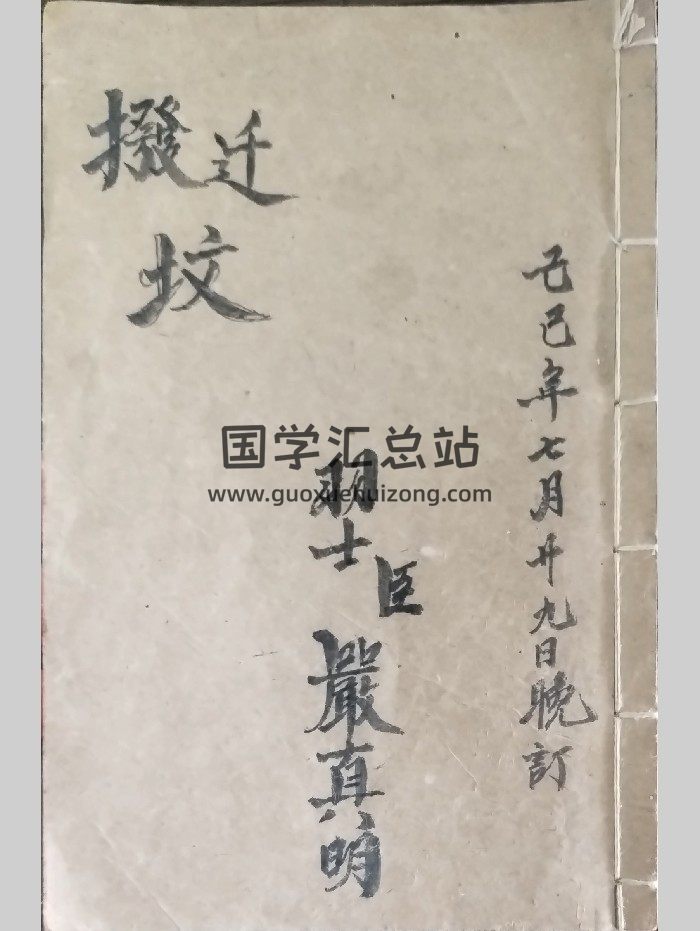 己巳年七月廿九日晚訂
羽士
臣
嚴真明
撥迁
坟
国学汇总站
www.guoxuehuizong.com